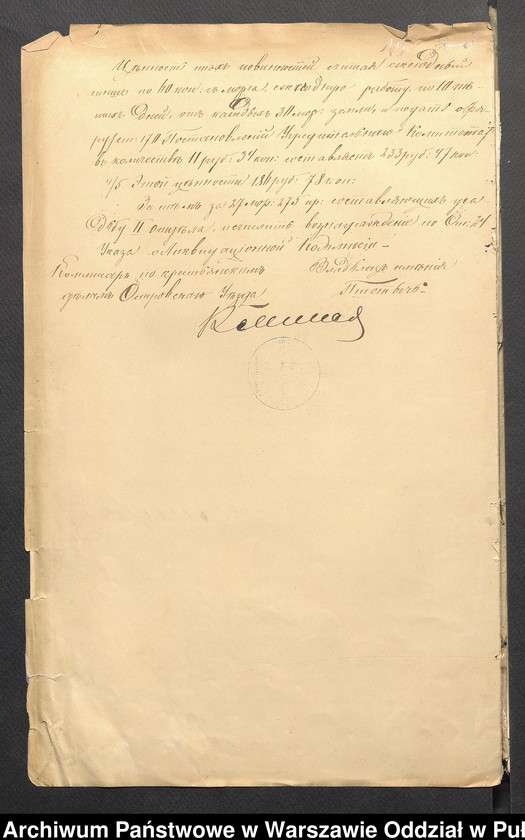 Цѣнность тѣхъ повинностей считая ежегодный
по 60 коп: съ морга, ежегодную работу по 10
Дней, отъ каждыхъ 30 мор: земли, и податъ
170 Постановленій Учредительнаго Комитета
въ количествѣ 11 руб: 34 коп: составляетъ 233 руб: 47 коп:
4/5 Этой цѣнности 186 руб: 78 коп:
За тѣмъ за 27 мор: 275 пр: составляющихъ уса
дьбу II отдѣла, исчислить вознагражденіе по Ст: 24
Указа о Ликвидаціонной Комисіи
Коммисаръ по крестьянскимъ
дѣламъ Островскаго Уѣзда
Владѣлецъ имѣнія
Archiwum Państwowe w Warszawie Oddział w Pu